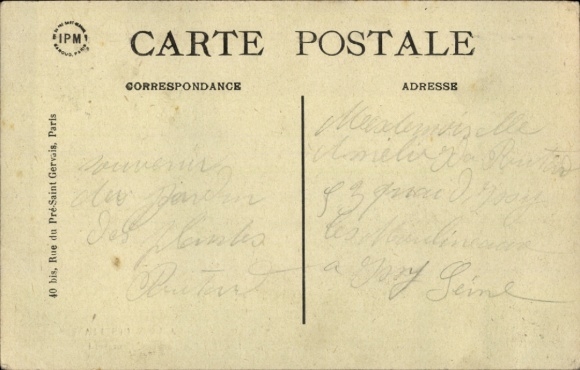 IPM
CARTE POSTALE
CORRESPONDANCE
ADRESSE
40 bis, Rue du Pré-Saint Gervais, Paris
souvenir
du Jardin
des plantes
Mademoiselle
Amelie
53 quai d'issy
les Moulineaux
a Issy Seine